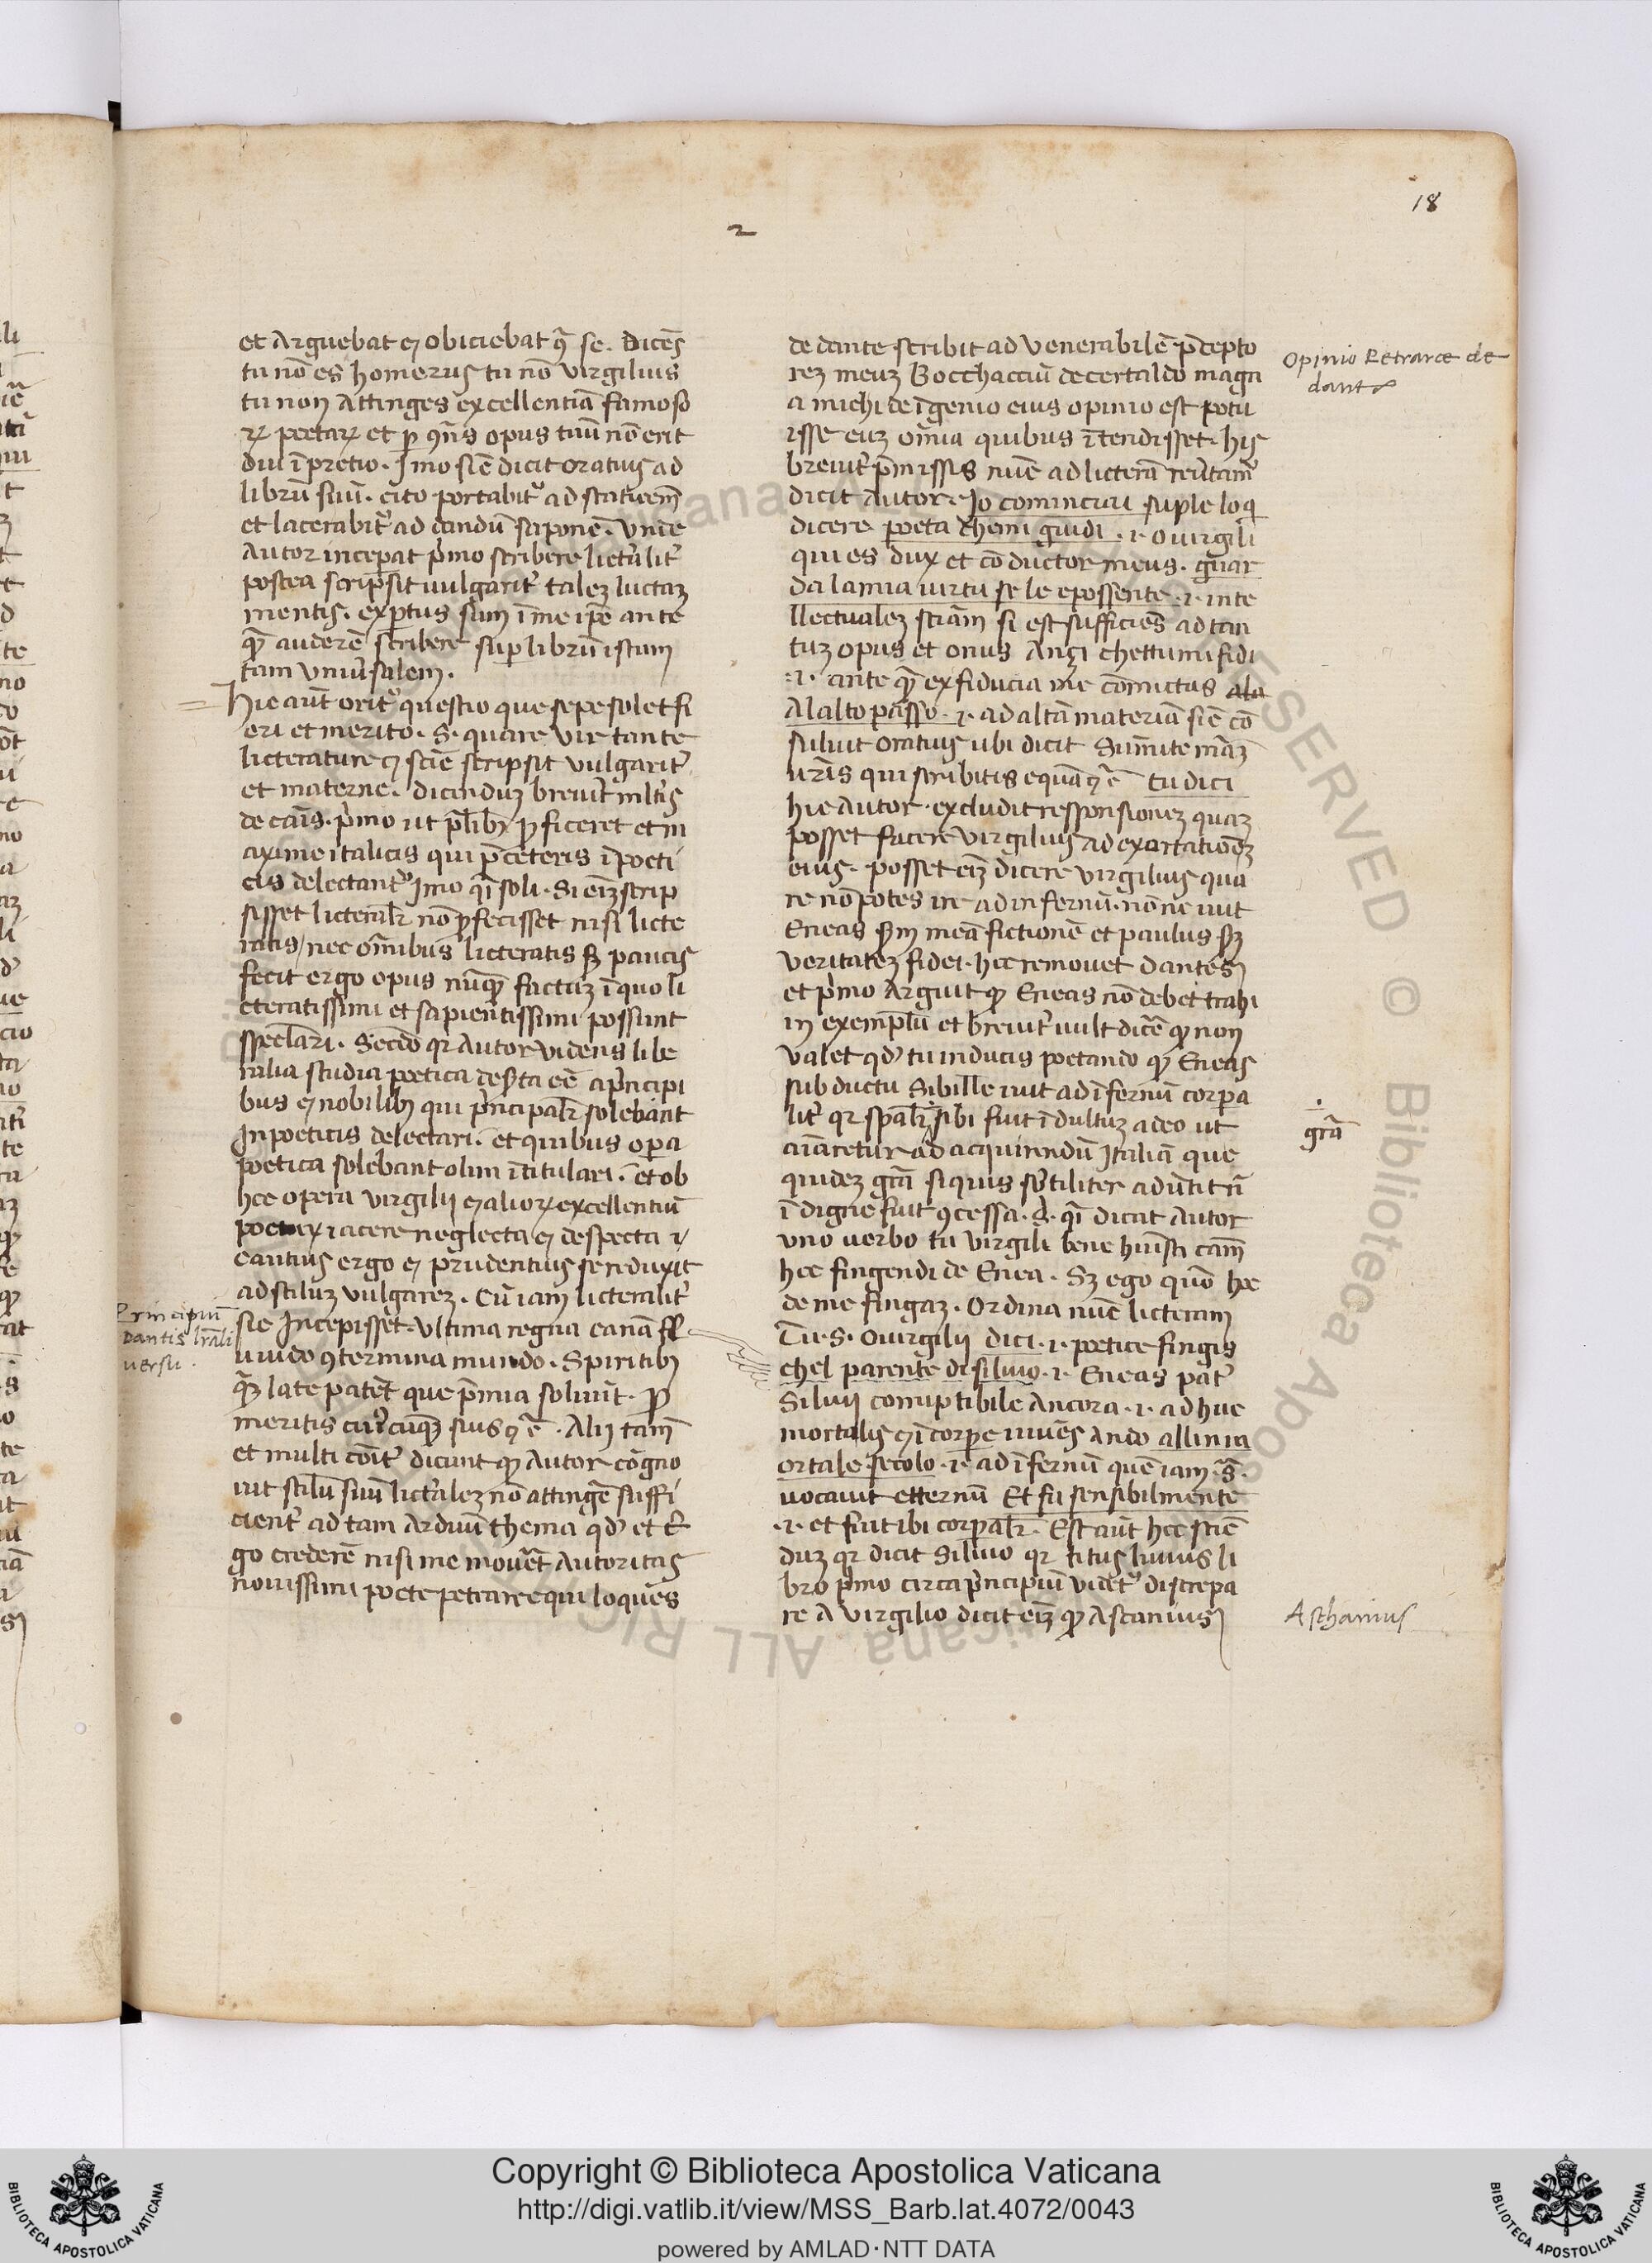 18
2
et Arguebat ⁊ obiciebat ꝯͣ se. Dicēs
tu nō es homerus tu nō virgilius
tu non Attinges excellentiā famoso
ꝝ poetaꝝ et ꝑ ꝯn̄s opus tuū nō erit
diu ī pretio. Imo sic̄ dicit oratius ad
librū suū. cito portabit᷑ ad statuem̄
et lacerabit᷑ ad dandū saponē. Unde
Autor inceperat p̄mo scribere lict̄alit᷑
postea scripsit uulgarit᷑ talez luctaz
mentis. exꝑtus sum ī me ip̄e ante
qͣ̄ auderē scribere suꝑ librū istum
tam univ̄salem.
Hic aūt orit᷑ questio que sepe solet fi
eri et merito. S. quare vir tante
licterature ⁊ scīe scripsit vulgarit᷑
et materne. dicenduz brevit᷑ mltīs
de cāis. p̄mo ut pl̄ibꝫ ꝓficeret et m
axime italicis qui p̄ ceteris ī poeti
cis delectant᷑ Imo qͣi soli. Si eīz scrip
sisset licteralr̄ nō ꝓfecisset nisi licte
ratis / nec om̄ibus licteratis sꝫ paucis
fecit ergo opus nūqͣ̄ factuz ī quo li
cteratissimi et sapientissimi possunt
specl̄ari. Secd̄o qr Autor videns libe
ralia studia poetica des̄ta eē a p̄ncipi
bus ⁊ nobilibꝫ qui p̄ncipalr̄ solebant
In poeticis delectari. et quibus oꝑa
poetica solebant olim ītitulari. et ob
hec opera virgilii ⁊ alioꝝ excellentiū
poetaꝝ iacere neglecta ⁊ despecta
cautius ergo ⁊ prudentius se reduxit
ad stiluz vulgarez. Cū iam licteralit᷑
sic Incepisset. Ultima regna canā fl
uuido ꝯtermina mundo. Spiritibꝫ
qͣ̄ late patēt que p̄mia solvūt. ꝓ
meritis cuīcūqꝫ suis ⁊c̄. Alij tam̄
et multi cōit᷑ dicunt ꝙ Autor cōgno
vit stilū suū lict̄alez nō attingē suffi
cient᷑ ad tam Arduū thema qd̓ et E
go crederē nisi me mov̄et Autoritas
nouissimi poete petrarce qui loquēs
Principiū
Dantis lr̄ali
versu.
de dante scribit ad venerabilē p̄cepto
rez meuz Bocchacciū de certaldo magn
a michi de īgenio eius opinio est potu
isse euz om̄ia quibus ītendisset. his
brevit᷑ p̄missis nūc ad licterā rev̄tam᷑
dicit Autor. Io cominciai suple loq
dicere poeta chemi guidi .i. o virgili
qui es dux et cōductor meus. guar
da la mia virtu se le epossente .i. inte
llectualez sciām si est sufficiēs ad tan
tuz opus et onus Anzi chettu mi fidi
.i. ante qͣ̄ ex fiducia me cōmictas
Al alto passo .i. ad altā materiā sic̄ cō
suluit oratius ubi dicit Summite mr̄az
vr̄is qui scribitis equā ⁊c̄ Tu dici
hic Autor excludit responsionez quaz
posset facere virgilius ad exortationez
eius. posset eīz dicere virgilius qua
re nō potes ire ad infernū. nōne ivit
Eneas scd̄m meā fictionē et paulus scd̄m
veritatez fidei. hec removet dantes
et p̄mo Arguit ꝙ Eneas nō debet trahi
in exemplū et brevit᷑ vult dicē ꝙ non
valet qd̓ tu inducis poetando ꝙ Eneas
sub ductu Sibille ivit ad īfernū corpa
lit᷑ qr spālr̄ sibi fuit īdultuz a deo ut
aīaretur ad acquirendū Italiā que
quidez grā si quis sb̄tiliter advertit nō
īdigne fuit ꝯcessa. S. qͣi dicat Autor
uno verbo tu virgili bene huisti cam̄
hec fingendi de Enea. Sz ego quō hec
de me fingaz. Ordina nūc licteram
Tu. S. O virgilii dici .i. poetice fingis
chel parente di silvio .i. Eneas pat᷑
Silvii corruptibile Ancora .i. ad huc
mortalis ⁊ ī corpe vivēs Ando all inm
ortale secolo .i. ad īfernū quē iam S.
vocavit etternū Et fu sensibilmente
.i. et fuit ibi corporalr̄. Est aūt hec scīē
duz qr dicit Silvio qr titus livius li
bro p̄mo circa p̄ncipiū videt᷑ discrepa
re A virgilio dicit eīz ꝙ Ascanius
Opinio Petrarce de
dante
grā
Aschanius
Copyright © Biblioteca Apostolica Vaticana
http://digi.vatlib.it/view/MSS_Barb.lat.4072/0043
powered by AMLAD·NTT DATA
BIBLIOTECA APOSTOLICA VATICANA
BIBLIOTECA APOSTOLICA VATICANA